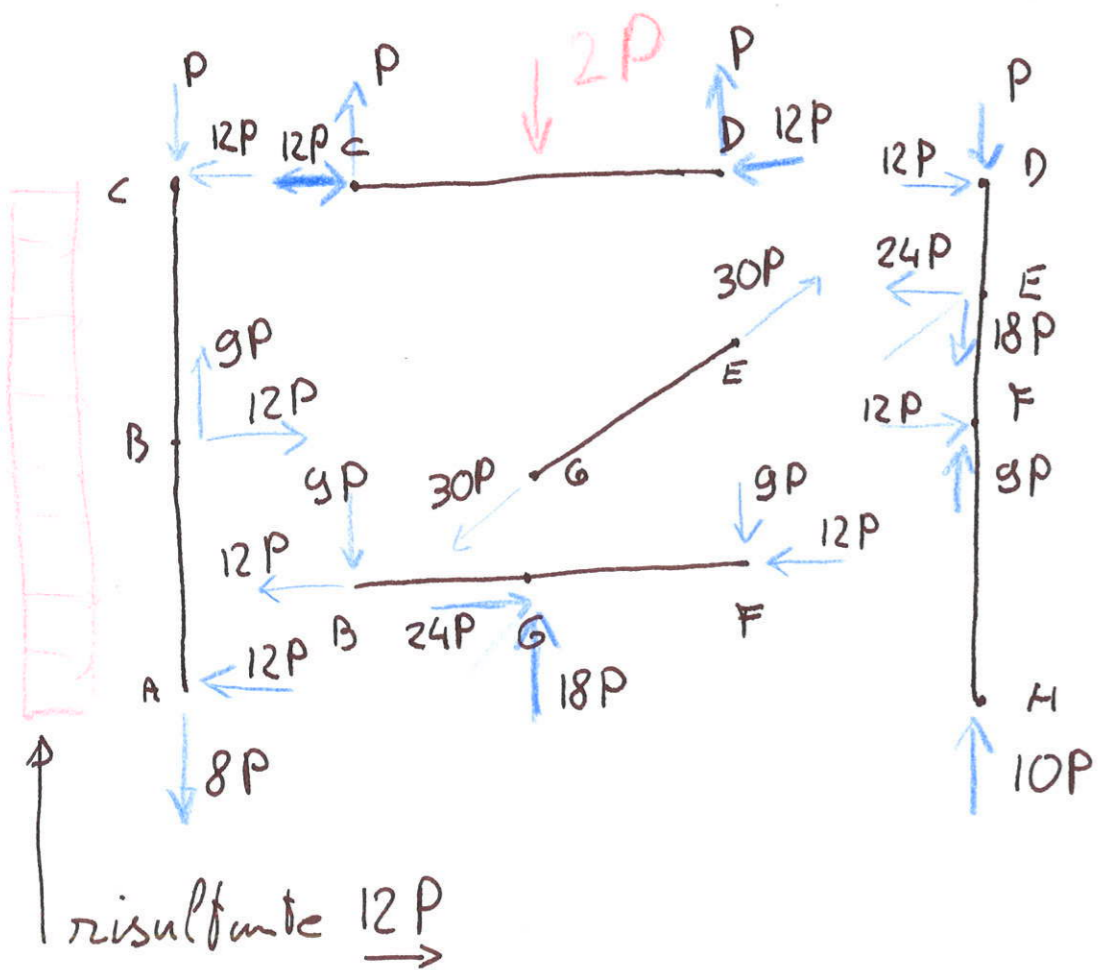 2P
P
P
P
P
12P
12P
C
D
12P
C
12P
D
24P
30P
E
9P
E
18P
12P
12P
F
B
9P
30P
G
9P
9P
12P
12P
B
24P
G
F
A
12P
18P
H
8P
10P
risultante 12P